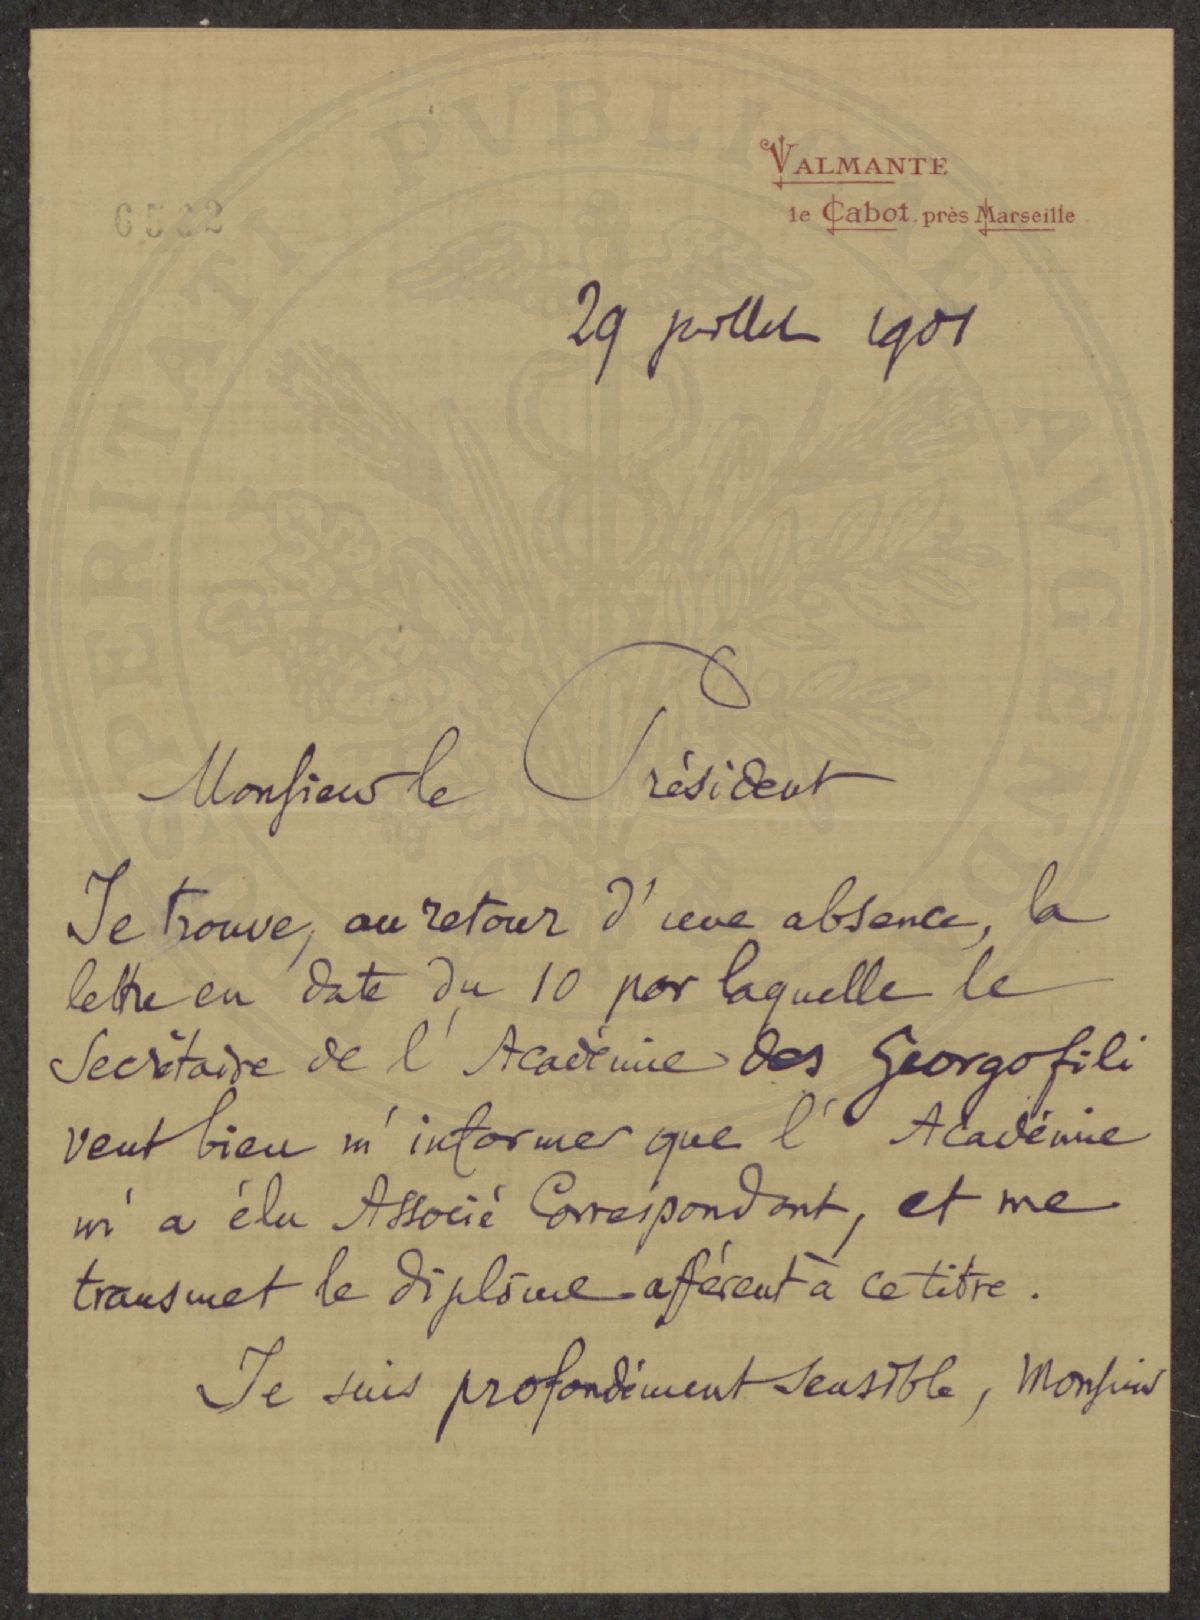 VALMANTE
le Cabot près Marseille
6562
29 juillet 1901
Monsieur le Président
Je trouve, au retour d'une absence, la
lettre en date du 10 par laquelle le
Secrétaire de l'Académie des Georgofili
veut bien m'informer que l'Académie
m'a élu Associé Correspondant, et me
transmet le diplôme afférent à ce titre.
Je suis profondément sensible, Monsieur
PROSPERITATI PVBLICAE AVGENDAE